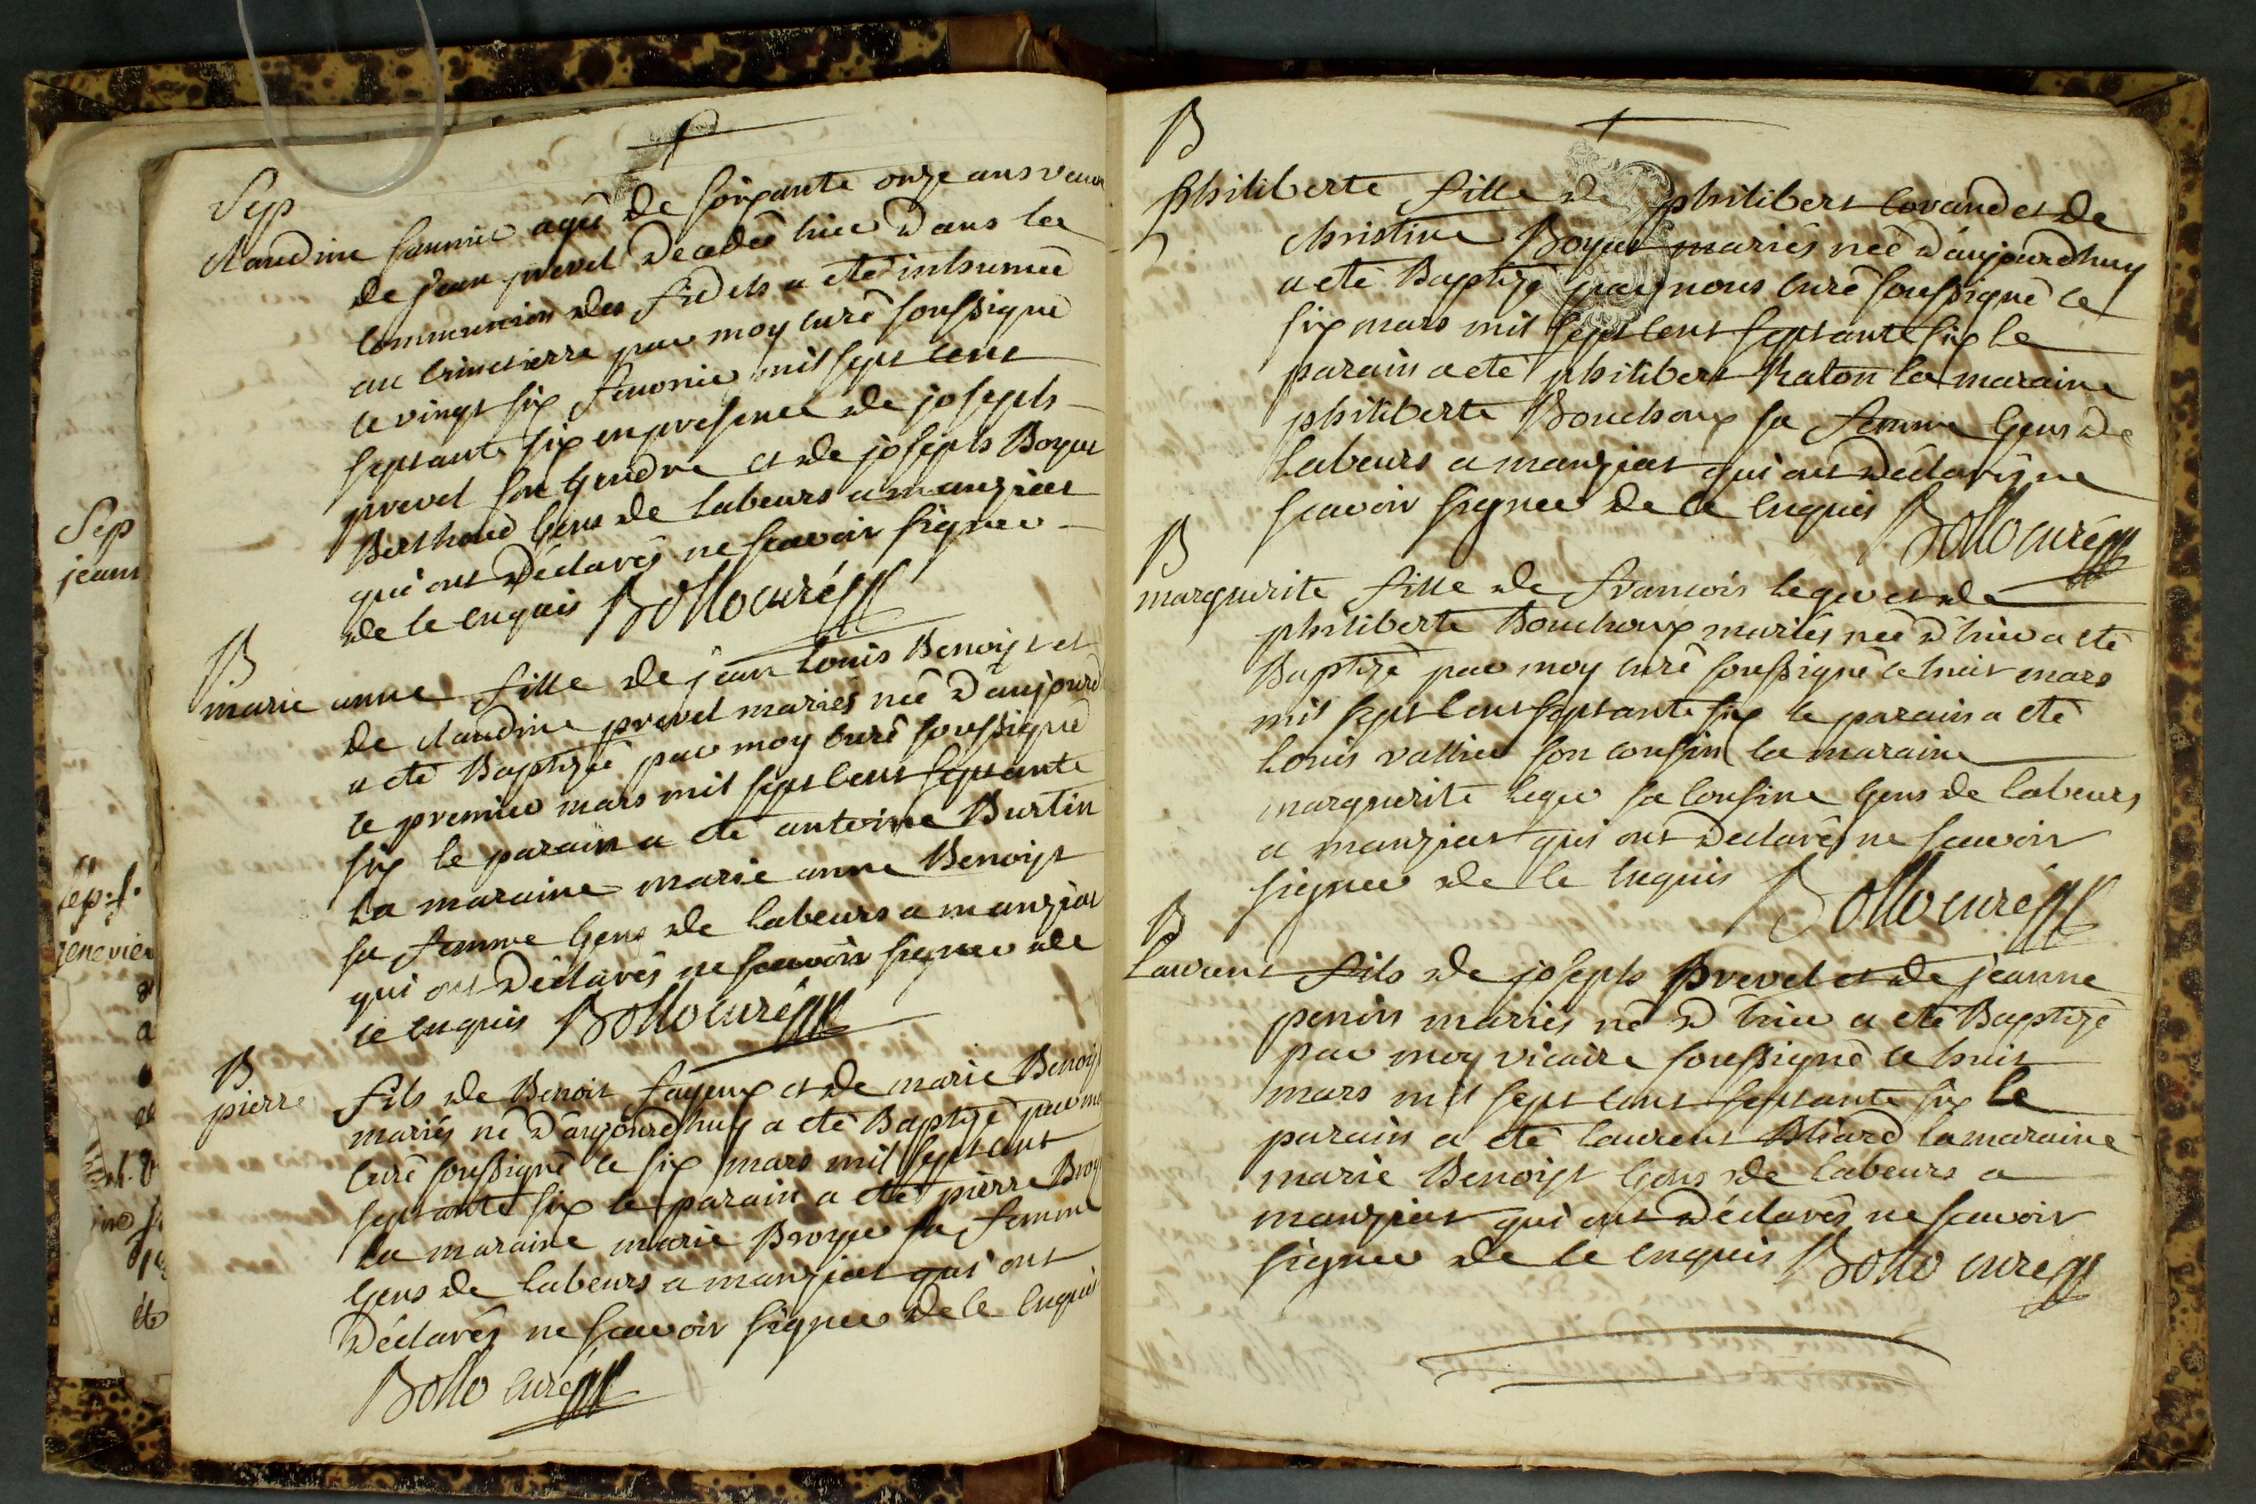 Sep
Claudine agée de soixante onze ans veuve
de jean prevel decedée hier dans la
Communion des fidels a eté inhumée
au Cimetierre par moy curé soussigné
le vingt six mil sept cent
septante six en presence de joseph
prevel son gendre et de joseph Boyer
Berthoud gens de labeurs a manziat
qui ont déclarés ne scavoir signer
de ce enquis Bollo curé
B
marie anne fille de jean Louis Benoist et
de claudine prevel mariés née d'aujourd
a eté Baptizée par moy curé soussigné
le premier mars mil sept cent septante
six le parain a eté antoine Burtin
La maraine marie anne Benoist
sa femme gens de labeurs a manziat
qui ont déclarés ne scavoir signer de
ce enquis Bollo curé
B
pierre fils de Benoit fayeux et de marie Benoist
mariés né d'aujourdhuy a eté Baptizé par
curé soussigné le six mars mil sept cent
septante six le parain a eté pierre
La maraine marie Broyer sa femme
gens de labeurs a manziat qui ont
déclarés ne scavoir signer de ce enquis
Bollo curé
B
philiberte fille de philibert et de
christine Boyer mariés née d'aujourdhuy
a eté Baptizé par nous curé soussigné le
six mars mil sept cent septante six le
parain a eté philibert Raton la maraine
philiberte Bouchoux sa femme gens de
Labeurs a manziat qui ont déclarés ne
scavoir signer de ce enquis Bollo curé
B
marguerite fille de francois leger et de
philiberte Bouchoux mariés née d'hier a eté
Baptizé par moy curé soussigné le huit mars
mil sept cent septante six le parain a eté
Louis vallier son cousin la maraine
marguerite leger sa cousine gens de labeurs
a manziat qui ont declarés ne scavoir
signer de ce enquis Bollo curé
B
Laurent fils de joseph prevel et de jeanne
penin mariés né d'hier a eté Baptizé
par moy vicaire soussigné le huit
mars mil sept cent septante six le
parain a eté laurent Bliard la maraine
marie Benoist gens de labeurs a
manziat qui ont déclarés ne scavoir
signer de ce enquis Bollo curé